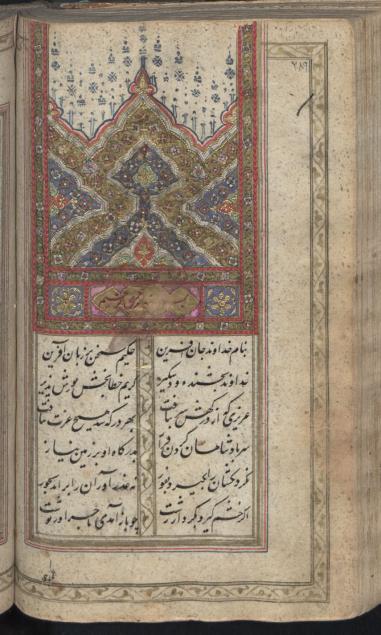 بنام خداوند جان آفرین حکیم سخن بر زبان آفرین
خداوند بخشنده و دستگیر کریم خطابخش پوزش پذیر
عزیزی که از درکهش سر بتافت بهر در که شد هیچ عزت نیافت
سر پادشاهان کردن فراز بدرکاه او بر زمین نیاز
نه کردنکشان را بکیرد بفور نه عذرآوران را براند بجور
اکر خشم کیرد بکردار زشت چو بازآمدی ماجرا در نوشت